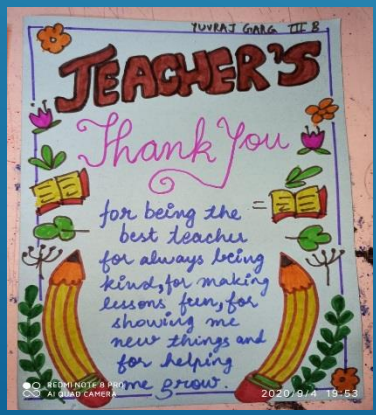 YUVRAJ GARG III B
TEACHER'S
Thank You
for being the
best teacher
for always being
kind, for making
lessons fun, for
showing me
new things and
for helping
me grow.
REDMI NOTE 8 PRO
AI QUAD CAMERA
2020/9/4 19:53